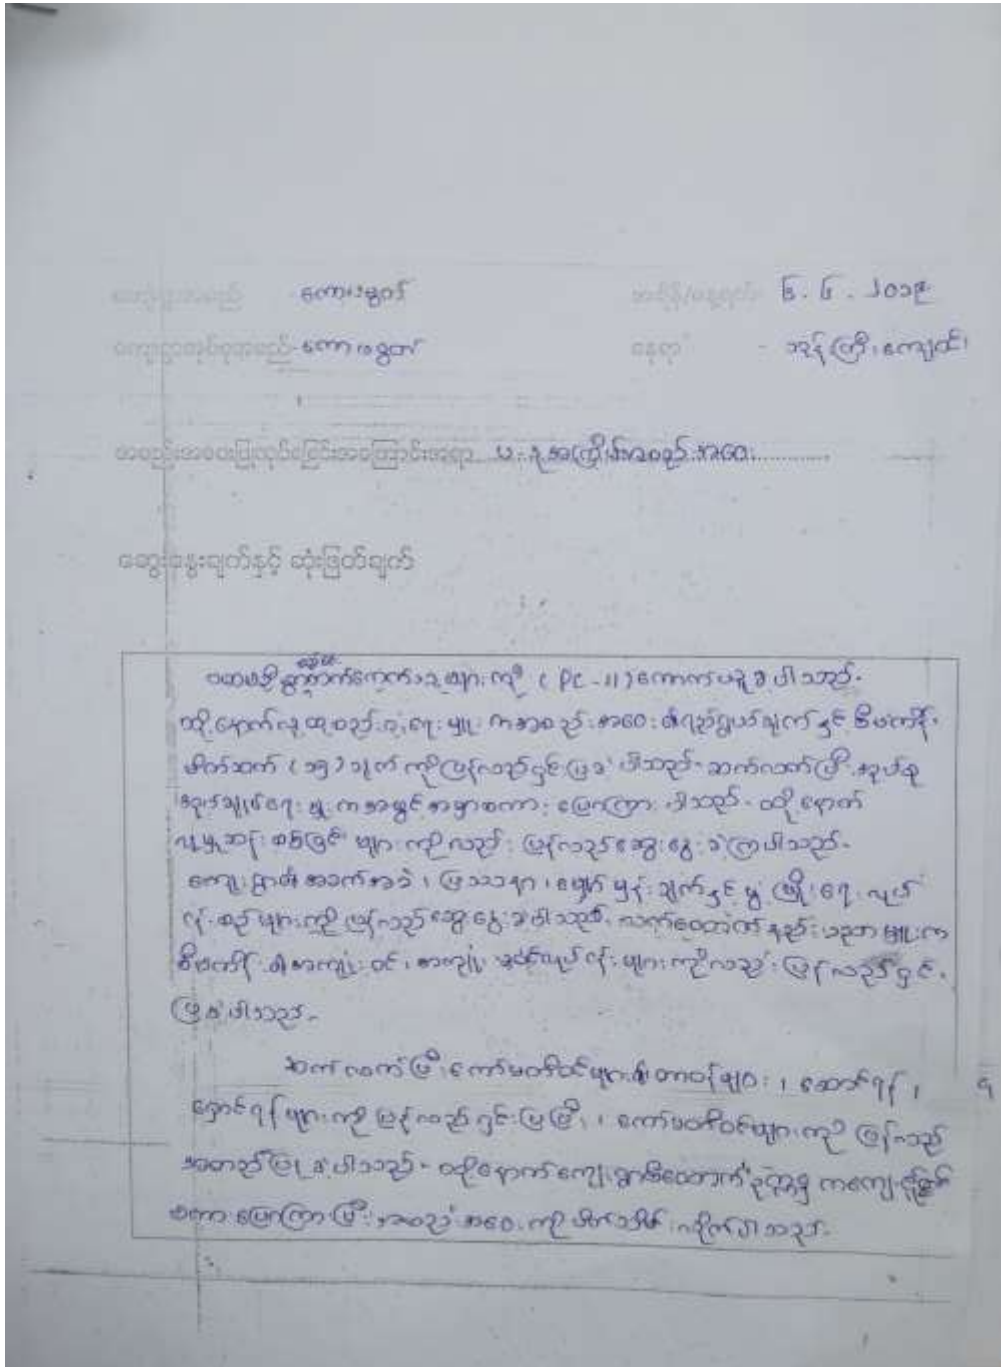 ကျေးရွာအမည် - ကောဖွတ် အချိန်/နေ့ရက် ၆.၆.၂၀၁၉
ကျေးရွာအုပ်စုအမည် - ကောဖွတ် နေရာ - ဘုန်းကြီးကျောင်း
အစည်းအဝေးပြုလုပ်ခြင်းအကြောင်းအရာ ပ-ဒု အကြိမ် အစည်းအဝေး
ဆွေးနွေးချက်နှင့် ဆုံးဖြတ်ချက်
ပထမဦးစွာ ကော်မတီ များကို (PC-11) ကောက်ယူခဲ့ပါသည်။
ထို့နောက် လူထုစည်းရုံးရေးမှူးကအစည်းအဝေး၏ရည်ရွယ်ချက်နှင့် စီမံကိန်း
မိတ်ဆက် (၁၅) ချက် ကိုပြန်လည်ရှင်းပြခဲ့ပါသည်။ ဆက်လက်ပြီး အုပ်စု
အုပ်ချုပ်ရေးမှူးကအဖွင့်အမှာစကား ပြောကြားပါသည်။ ထို့နောက်
လူမှုဆန်းစစ်ခြင်း များကိုလည်း ပြန်လည်ဆွေးနွေးခဲ့ကြပါသည်။
ကျေးရွာ၏ အခက်အခဲ၊ ပြဿနာ၊ မျှော်မှန်းချက်နှင့် ဖွံ့ဖြိုးရေးလုပ်
ငန်းစဉ်များကို ပြန်လည်ဆွေးနွေးခဲ့ပါသည်။ လက်ထောက်နည်းပညာမှူးက
စီမံကိန်း၏အကျုံးဝင်၊ အကျုံးမဝင်လုပ်ငန်းများကိုလည်း ပြန်လည်ရှင်း
ပြခဲ့ပါသည်။
ဆက်လက်ပြီး ကော်မတီဝင်များ၏တာဝန်များ၊ ဆောင်ရန်၊
ရှောင်ရန်များကို ပြန်လည်ရှင်းပြပြီး၊ ကော်မတီဝင်များကို ပြန်လည်
အတည်ပြုခဲ့ပါသည်။ ထို့နောက်ကျေးရွာစီထောက်ဥက္ကဋ္ဌ ကကျေးဇူးတင်
စကားပြောကြားပြီး အစည်းအဝေးကို ပိတ်သိမ်းလိုက်ပါသည်။